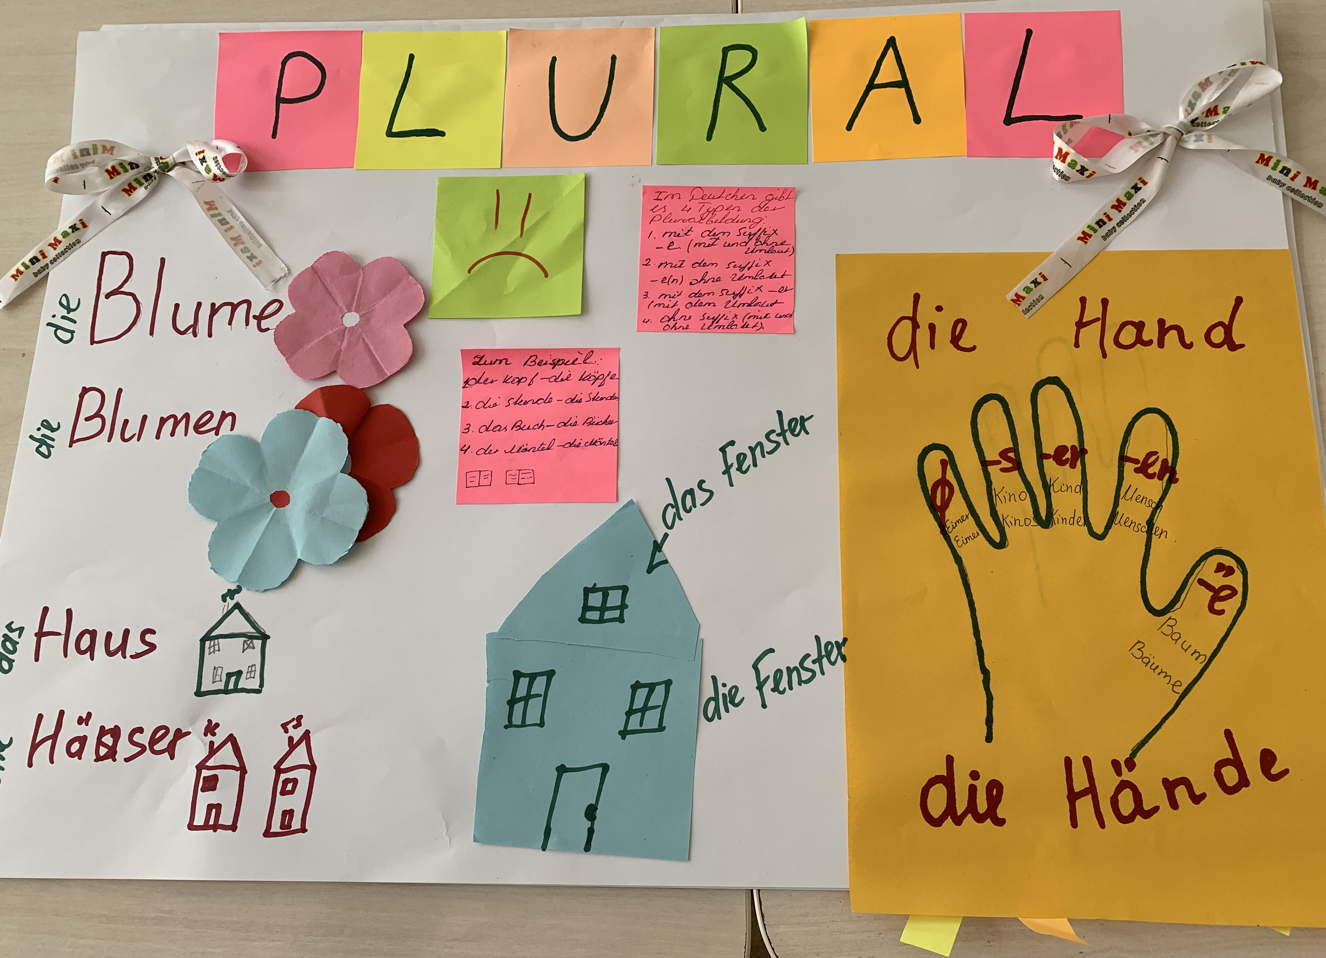 PLURAL
die Blume
die Blumen
das Haus
Häuser
Im Deutschen gibt
es 4 Typen der
Pluralbildung:
1. mit dem Suffix
-e (mit und ohne
Umlaut)
2. mit dem Suffix
-e(n) ohne Umlaut
3. mit dem Suffix -er
(mit dem Umlaut
4. ohne Suffix (mit und
ohne Umlaut).
Zum Beispiel:
1. der Kopf - die Köpfe
2. die Stunde - die Stunde
3. das Buch - die Bücher
4. der Mantel - die Mäntel
das Fenster
die Fenster
die Hand
-s -er -en
Kino Kind Mensch
Kinos Kinder Menschen.
Eimer
Eimer
-̈e
Baum
Bäume
die Hände
Mini Maxi
baby collection
Mini Maxi
baby collection